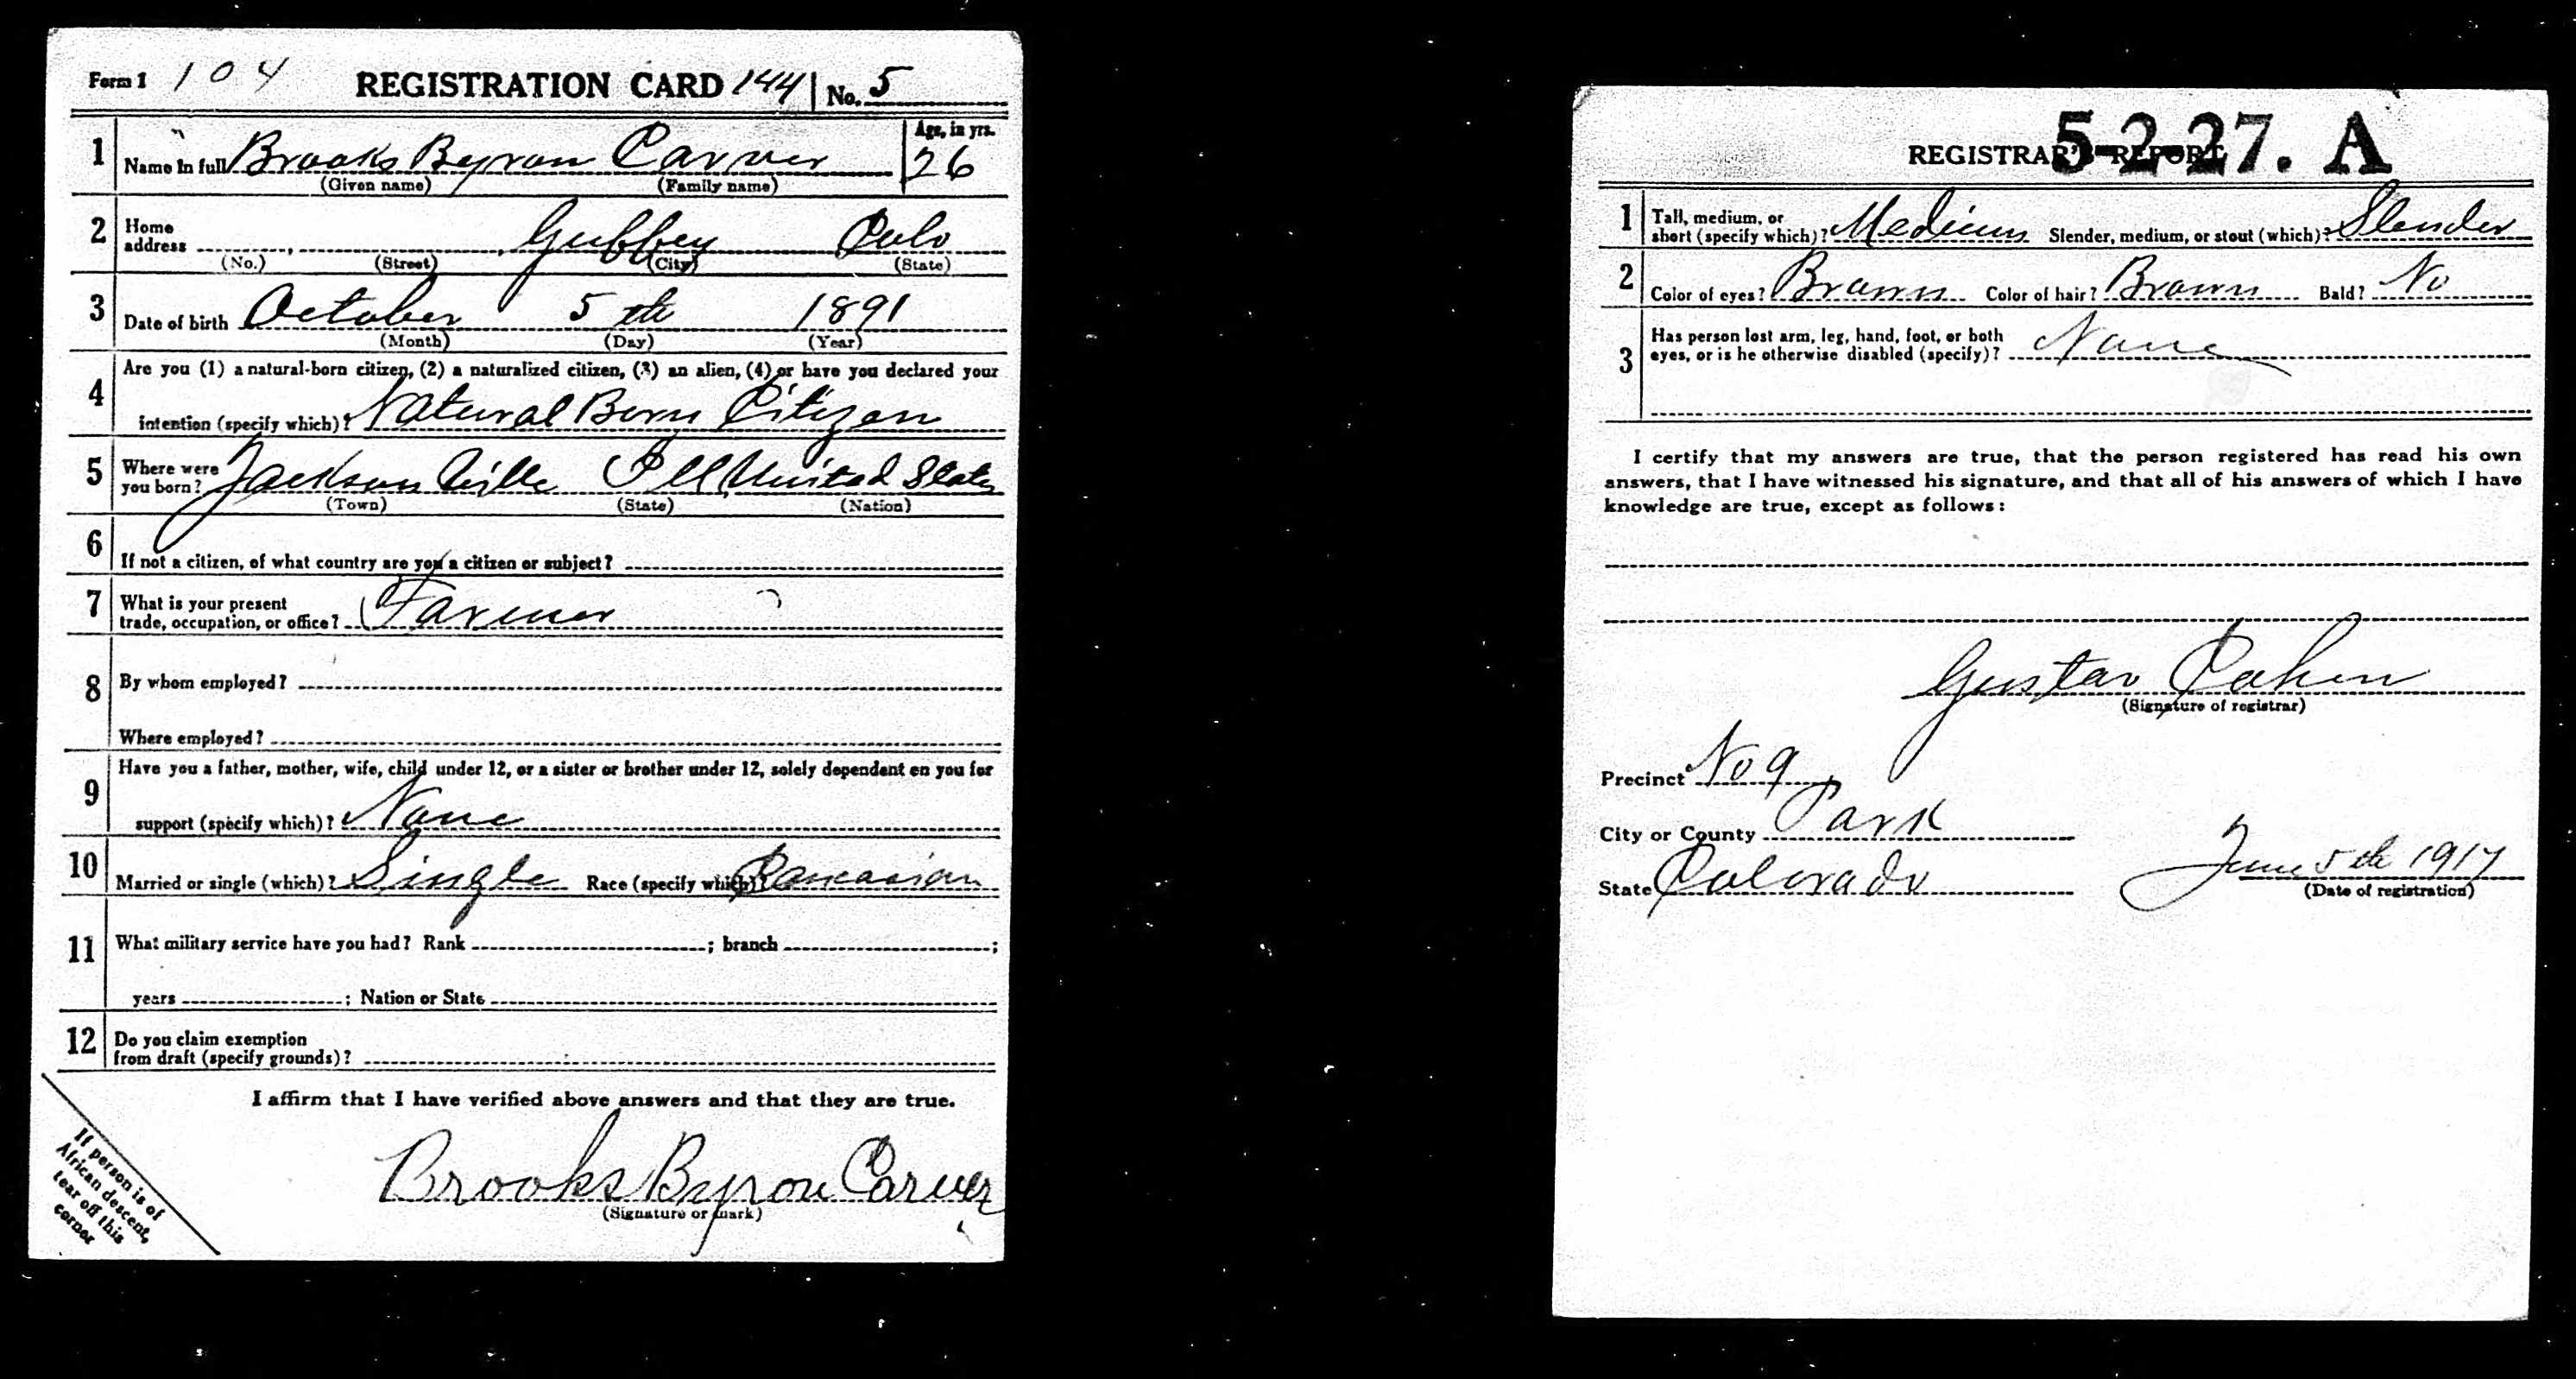 Form 1 104 REGISTRATION CARD 144 No. 5
1 Name in full Brooks Byron Carver Age, in yrs. 26
(Given name) (Family name)
2 Home address Guffey Colo
(No.) (Street) (City) (State)
3 Date of birth October 5th 1891
(Month) (Day) (Year)
4 Are you (1) a natural-born citizen, (2) a naturalized citizen, (3) an alien, (4) or have you declared your
intention (specify which)? Natural Born Citizen
5 Where were you born? Jacksonville Ill United States
(Town) (State) (Nation)
6 If not a citizen, of what country are you a citizen or subject?
7 What is your present
trade, occupation, or office? Farmer
8 By whom employed?
Where employed?
9 Have you a father, mother, wife, child under 12, or a sister or brother under 12, solely dependent on you for
support (specify which)? None
10 Married or single (which)? Single Race (specify which)? Caucasian
11 What military service have you had? Rank ; branch ;
years ; Nation or State
12 Do you claim exemption
from draft (specify grounds)?
I affirm that I have verified above answers and that they are true.
Brooks Byron Carver
(Signature or mark)
If person is of
African descent,
tear off this
corner
5-2-27. A
REGISTRAR'S REPORT
1 Tall, medium, or
short (specify which)? Medium Slender, medium, or stout (which)? Slender
2 Color of eyes? Brown Color of hair? Brown Bald? No
3 Has person lost arm, leg, hand, foot, or both
eyes, or is he otherwise disabled (specify)? None
I certify that my answers are true, that the person registered has read his own
answers, that I have witnessed his signature, and that all of his answers of which I have
knowledge are true, except as follows:
Gustav Cohen
(Signature of registrar)
Precinct No 9
City or County Park
State Colorado June 5th 1917
(Date of registration)